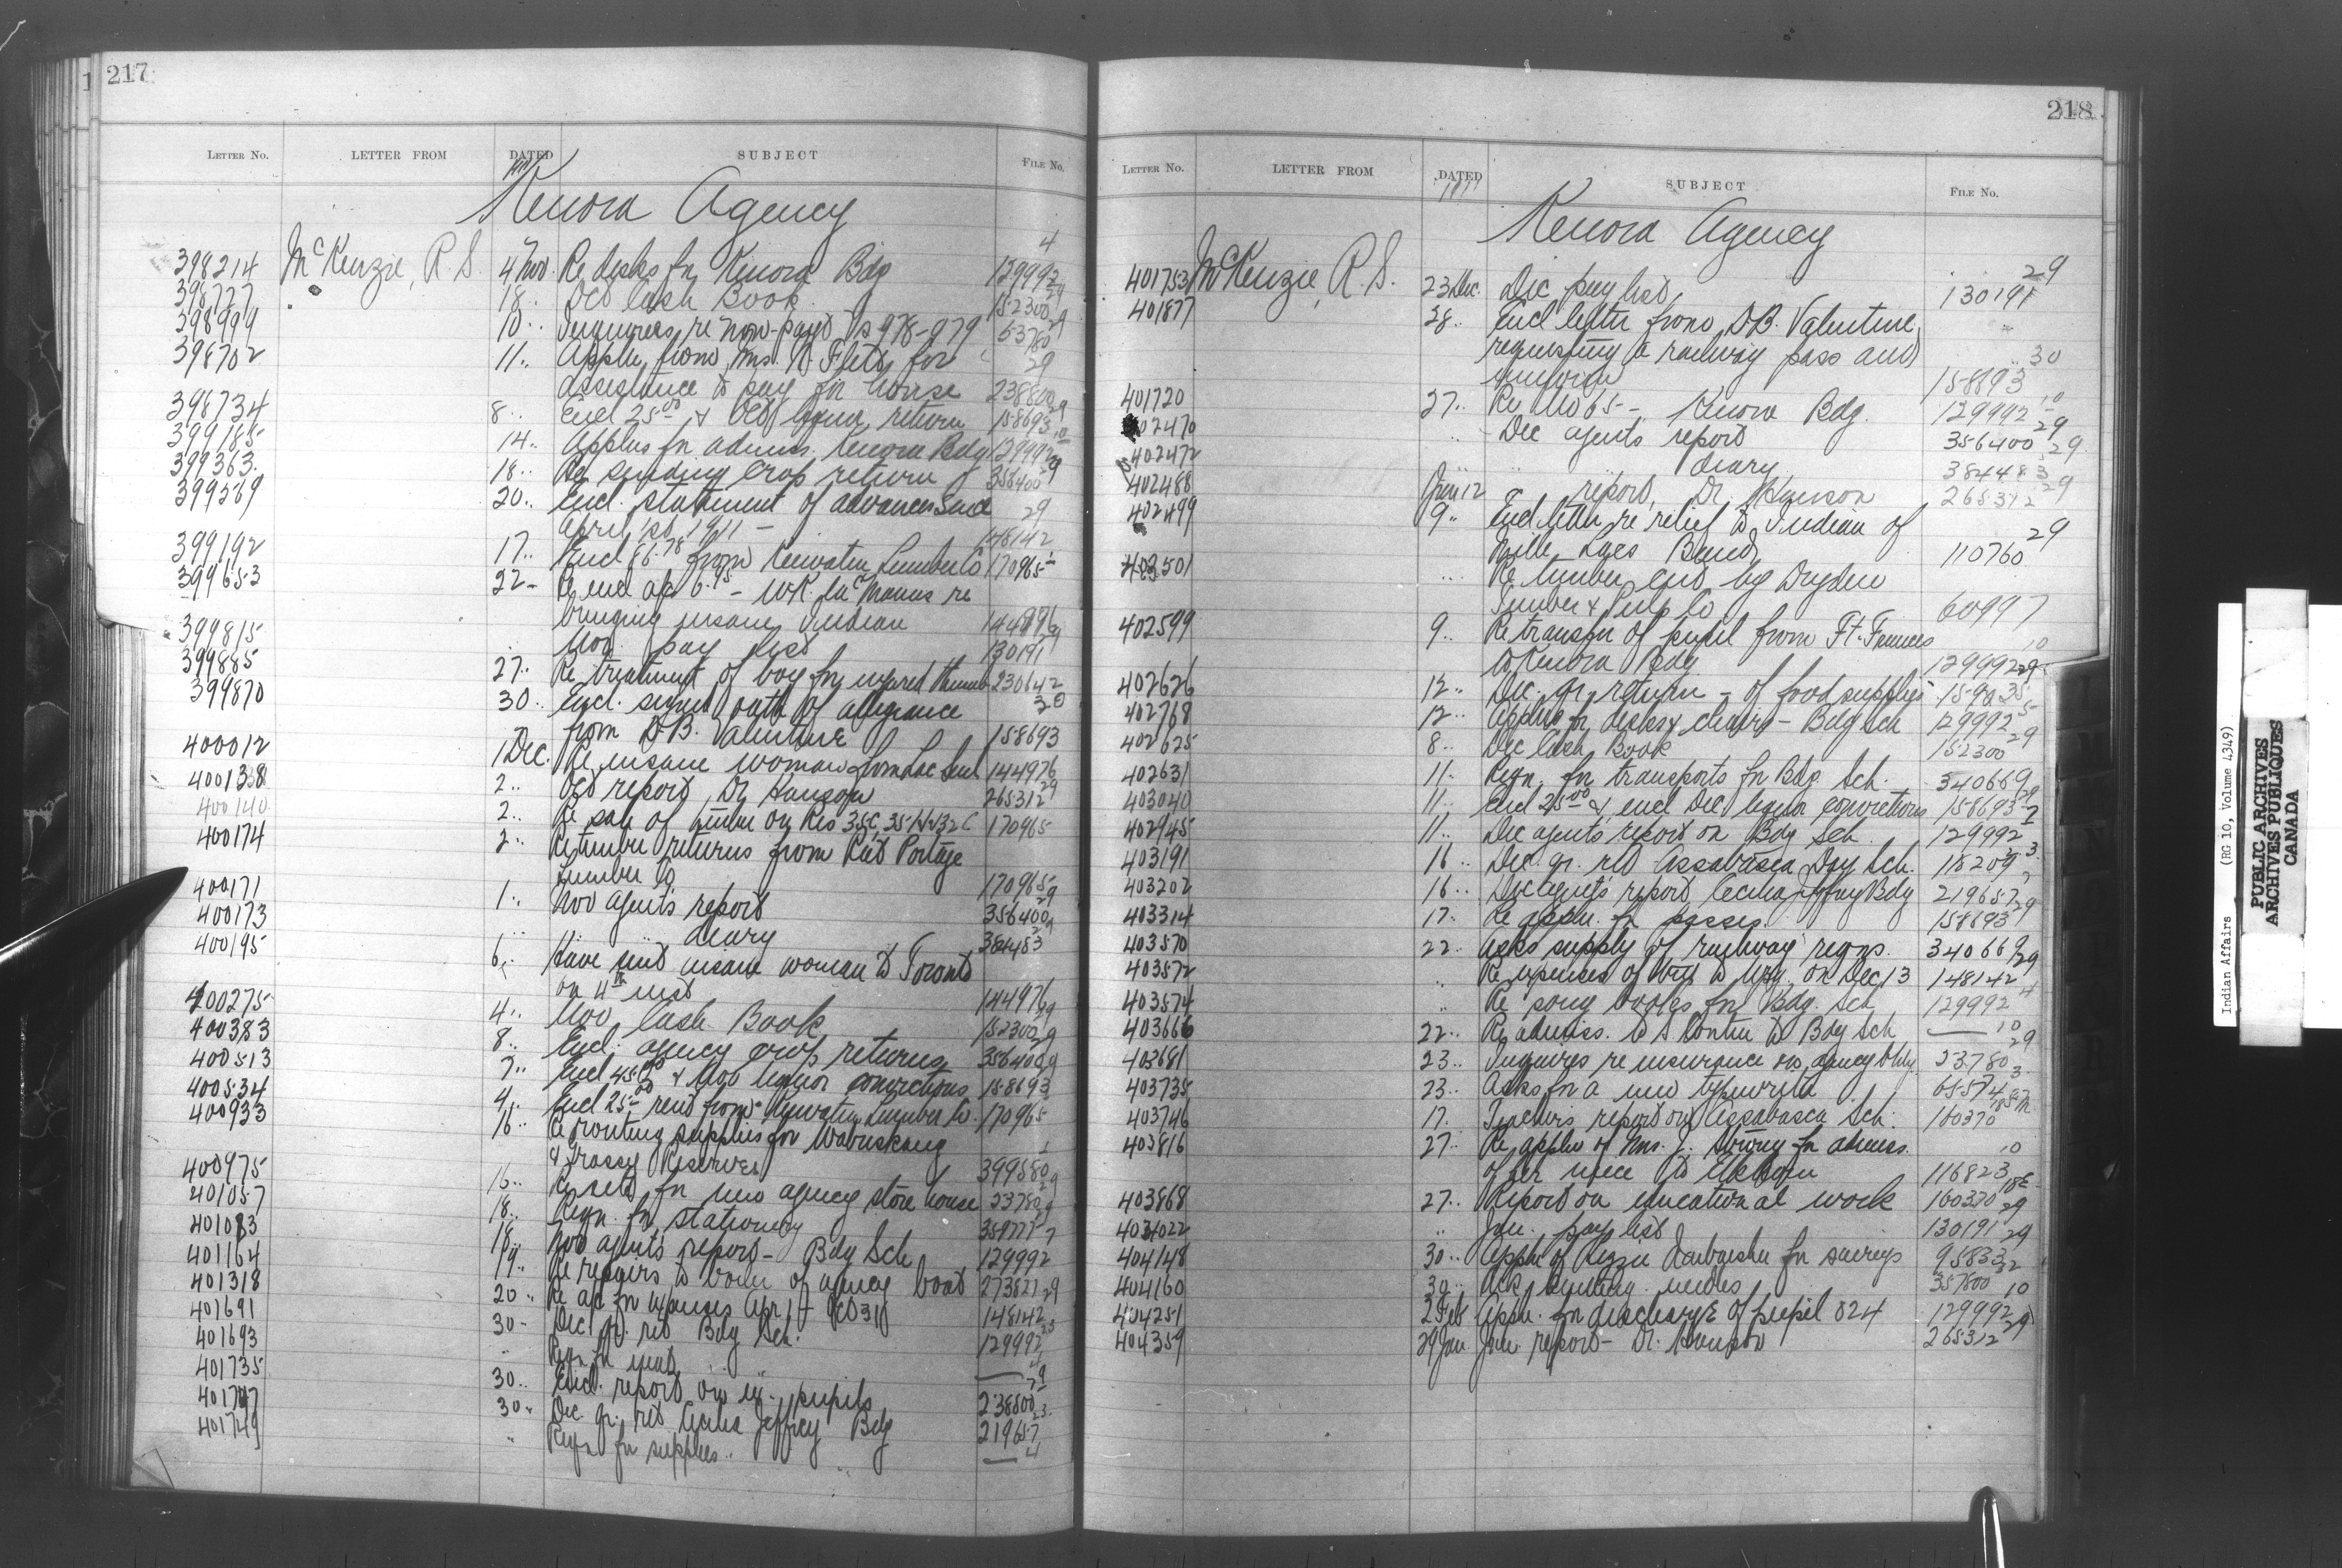 217
LETTER NO. LETTER FROM DATED SUBJECT FILE NO.
Kenora Agency
398214 McKenzie, R. S. 4 Nov. Re desks for Kenora Bdg 129992 4
398727 18.. Oct Cash Book 152300 29
398999 10.. Inquires re non-payt Vs 978-979 53780 29
398702 11.. Applin from Mrs. N. Flett for
assistance to pay for house 238800 29
398734 8.. Encl 25.00 & Oct liquor return 158693 29
399185 14.. Applns for admiss. Kenora Bdg 129992 10
399363 18.. Re sending crop return 356400 29
399569 20.. Encl. statement of advances since
April 1st 1911 - 148142 29
399192 17.. Encl 86.78 from Keewatin Lumber Co 170965
399653 22- Re encl a/c 6.95 - W.R. McManus re
bringing insane Indian 144976
399815 Nov. pay list 130191 29
399885 27.. Re treatment of boy for injured thumb 230642
399870 30.. Encl. signed oath of allegiance
from D.B. Valentine 158693 30
400012 1 Dec. Re insane woman from Lac Seul 144976
400138 2.. Oct report, Dr Hanson 265312 29
400140 2.. Re sale of timber on Res 35C, 35H & 32C 170965
400174 2.. Re timber returns from Rat Portage
Lumber Co 170965
400171 1.. Nov agent's report 356400 29
400173 .. .. diary 384483 29
400195 6.. Have sent insane woman to Toronto
on 4th inst 144976
400275 4.. Nov Cash Book 152300 29
400383 8.. Encl. agency crop returns 356400 29
400513 7.. Encl 45.00 & Nov liquor convictions 158693 29
400534 4.. Encl 25.00 rent from Keewatin Lumber Co. 170965
400933 16.. Re routing supplies for Wabuskang
& Grassy Reserves 399580 1
400975 16.. Re site for new agency store house 23780 29
401057 18.. Reqn. for stationery 359777 29
401083 18.. Nov agent's report - Bdg Sch 129992 7
401164 19.. Re repairs to boiler of agency boat 273827
401318 20.. Re a/c for expenses Apr 1 - Oct 31 148142 29
401691 30- Dec. qr. ret Bdg Sch. 129992 23
401693 .. Reqn for meat .. .. 4
401735 30.. Encl. report on ex-pupils 238800 29
401747 30.. Dec. qr. ret Cecilia Jeffrey Bdg 219657 23
401749 .. Reqn for supplies .. 4
218
LETTER NO. LETTER FROM DATED SUBJECT FILE NO.
1911
Kenora Agency
401753 McKenzie, R. S. 23 Dec. Dec pay list 130191 29
401877 28.. Encl letter from D.B. Valentine
requesting a railway pass and
uniform 158693 30
401720 27.. Re No 65 - Kenora Bdg. 129992 10
402470 .. Dec agents report 356400 29
402472 .. .. diary 384483 29
402488 Jan 12 .. report, Dr. Hanson 265312 29
402499 9.. Encl letter re relief to Indian of
Mille Lacs Band 110760 29
402501 .. Re timber cut by Dryden
Timber & Pulp Co 60997
402599 9.. Re transfer of pupil from Ft. Frances
to Kenora Bdg 129992 10
402626 12.. Dec. qr. return - of food supplies 29
402768 12.. Applin for desks & chairs - Bdg Sch 129992 5
402625 8.. Dec Cash Book 152300 29
402631 11.. Reqn. for transports for Bdg. Sch. 340669
403040 11.. Encl 25.00 & encl Dec liquor convictions 158693 29
402945 11.. Dec agents report on Bdg Sch 129992 7
403191 16.. Dec. qr. ret Assabasca Day Sch. 118209 23
403202 16.. Dec agents report, Cecilia Jeffrey Bdg 219657 7
403314 17.. Re appln. for passes 158693 29
403570 22.. Asks supply of railway reqns. 340669
403572 .. Re expenses of trip to Wpg. on Dec 13 148142 29
403574 .. Re song books for Bdg. Sch 129992 4
403666 22.. Re admiss. to Bdg Sch 10
403681 23.. Inquires re insurance on agency bldg. 23780 29
403735 23.. Asks for a new typewriter 65574 3
403746 17. Teacher's report on Assabasca Sch. 160370
403816 27.. Re applin of Mrs. J. for admiss.
of her niece to Elkhorn 116823 10
403868 27.. Report on educational work 160370 18E
404022 .. Jan. pay list 130191 29
404148 30.. Appln of Lizzie for savings 95833 29
404160 30.. Ask needles 357800 22
404251 2 Feb Appln. for discharge of pupil 024 129992 10
404359 29 Jan Jan. report - Dr. Hanson 265312 29
Indian Affairs (RG 10, Volume 4349)
PUBLIC ARCHIVES
ARCHIVES PUBLIQUES
CANADA